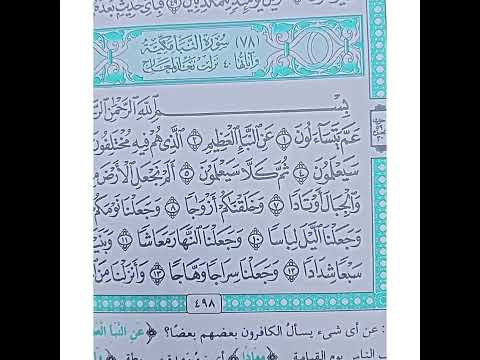 لِّلْمُكَذِّبِينَ ﴿٥٠﴾ فَبِأَيِّ حَدِيثٍ بَعْدَهُ
(٧٨) سُورَةُ النَّبَإِ مَكِّيَّة
وَآيَاتُهَا ٤٠ نَزَلَتْ بَعْدَ الْمَعَارِجِ
بِسْمِ اللَّهِ الرَّحْمَٰنِ
عَمَّ يَتَسَاءَلُونَ ﴿١﴾ عَنِ النَّبَإِ الْعَظِيمِ ﴿٢﴾ الَّذِي هُمْ فِيهِ مُخْتَلِفُونَ
سَيَعْلَمُونَ ﴿٤﴾ ثُمَّ كَلَّا سَيَعْلَمُونَ ﴿٥﴾ أَلَمْ نَجْعَلِ الْأَرْضَ
وَالْجِبَالَ أَوْتَادًا ﴿٧﴾ وَخَلَقْنَاكُمْ أَزْوَاجًا ﴿٨﴾ وَجَعَلْنَا نَوْمَكُمْ
وَجَعَلْنَا اللَّيْلَ لِبَاسًا ﴿١٠﴾ وَجَعَلْنَا النَّهَارَ مَعَاشًا ﴿١١﴾
سَبْعًا شِدَادًا ﴿١٢﴾ وَجَعَلْنَا سِرَاجًا وَهَّاجًا ﴿١٣﴾ وَأَنْزَلْنَا مِنَ
٤٩٨
: عن أى شىء يسألُ الكافرون بعضهم بعضًا؟ ﴿عن النبأ
الناس يوم القيامة ﴿مهادًا﴾